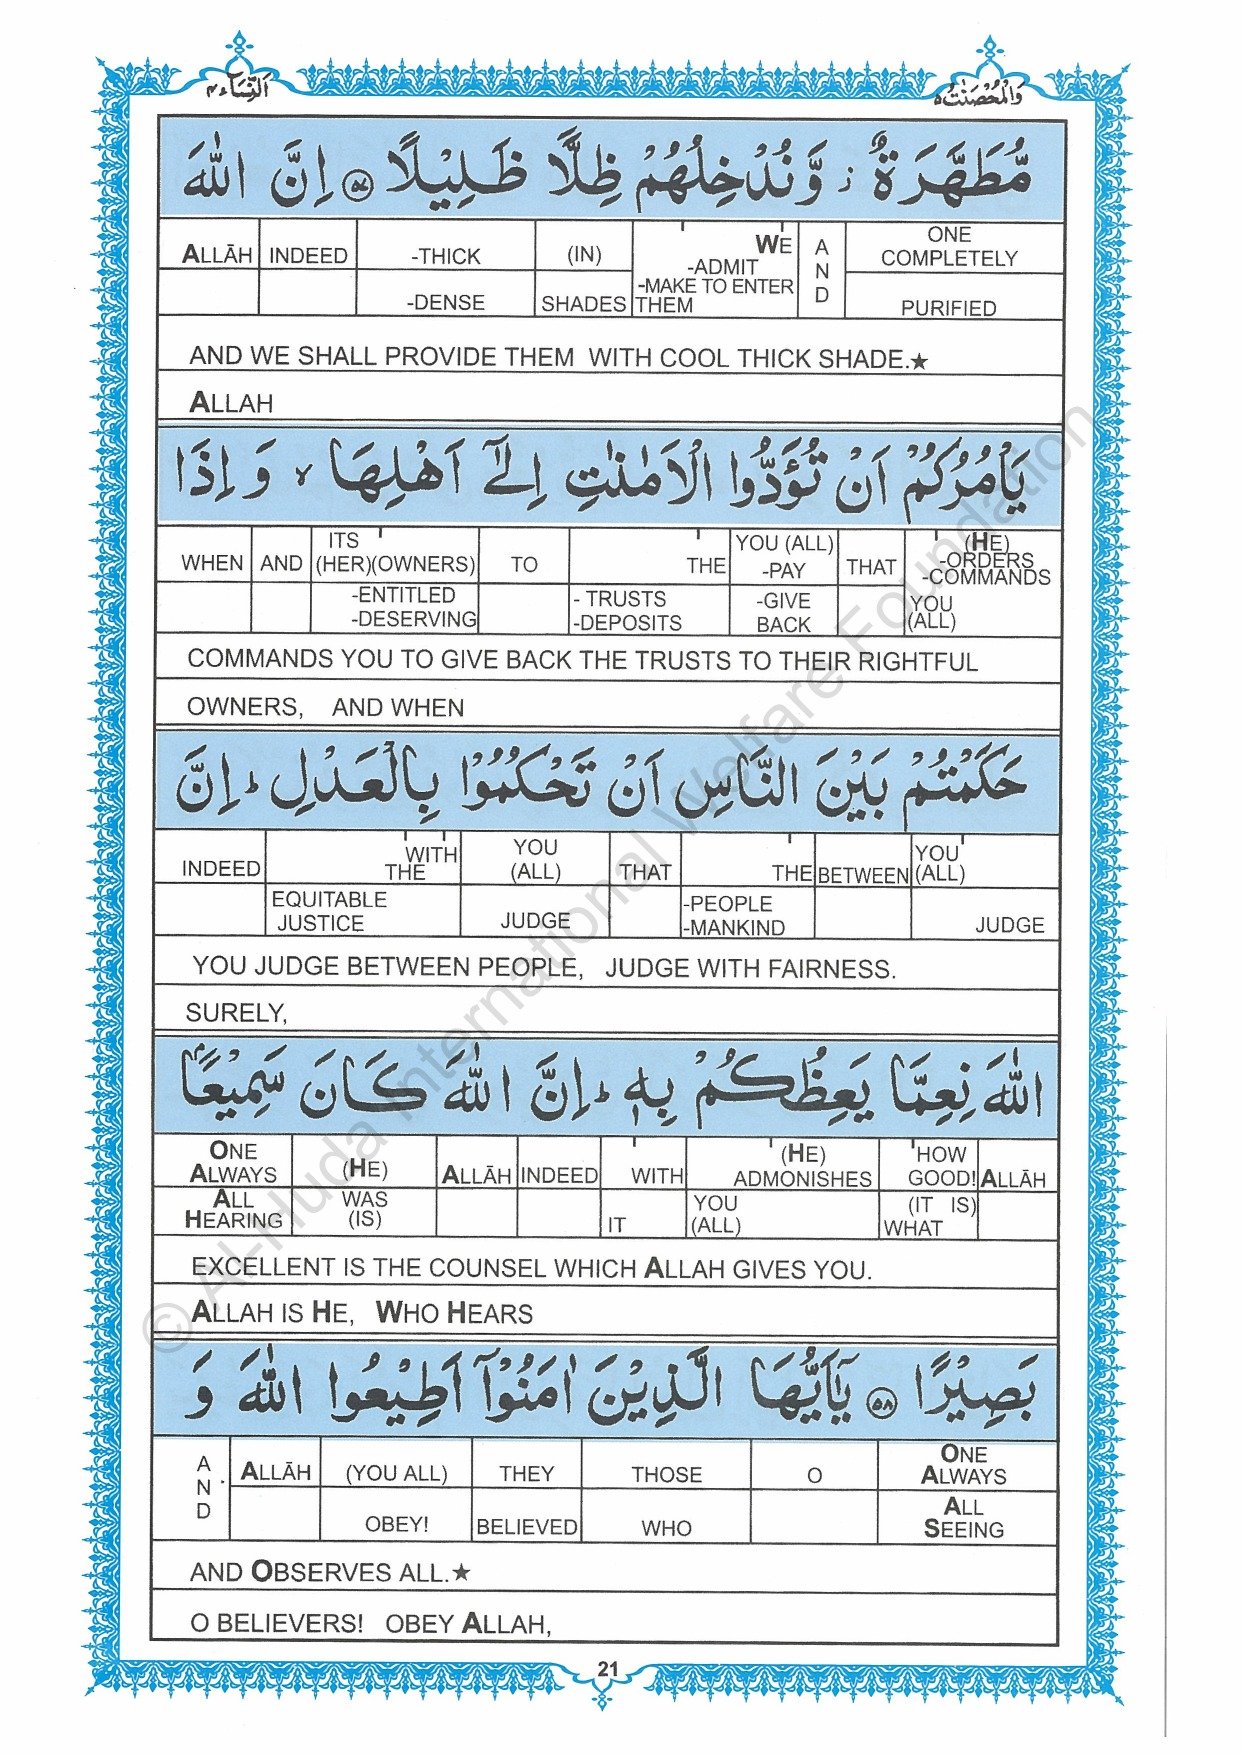 النِّسَاء ۴
وَالْمُحْصَنٰتُ ۵
مُّطَهَّرَةٌ ز وَّنُدْخِلُهُمْ ظِلًّا ظَلِيْلًا ﴿۵۷﴾ اِنَّ اللّٰهَ
ALLĀH INDEED -THICK (IN) WE AND ONE
-ADMIT COMPLETELY
-DENSE SHADES -MAKE TO ENTER THEM PURIFIED
AND WE SHALL PROVIDE THEM WITH COOL THICK SHADE.★
ALLAH
يَاْمُرُكُمْ اَنْ تُؤَدُّوا الْاَمٰنٰتِ اِلٰٓى اَهْلِهَا ۙ وَ اِذَا
WHEN AND ITS (HER)(OWNERS) TO THE YOU (ALL) -PAY THAT (HE) -ORDERS -COMMANDS
-ENTITLED -DESERVING - TRUSTS -DEPOSITS -GIVE BACK YOU (ALL)
COMMANDS YOU TO GIVE BACK THE TRUSTS TO THEIR RIGHTFUL
OWNERS, AND WHEN
حَكَمْتُمْ بَيْنَ النَّاسِ اَنْ تَحْكُمُوْا بِالْعَدْلِ ؕ اِنَّ
INDEED WITH THE YOU (ALL) THAT THE BETWEEN YOU (ALL)
EQUITABLE JUSTICE JUDGE -PEOPLE -MANKIND JUDGE
YOU JUDGE BETWEEN PEOPLE, JUDGE WITH FAIRNESS.
SURELY,
اللّٰهَ نِعِمَّا يَعِظُكُمْ بِهٖ ؕ اِنَّ اللّٰهَ كَانَ سَمِيْعًۢا
ONE ALWAYS (HE) ALLĀH INDEED WITH (HE) ADMONISHES HOW GOOD! ALLĀH
ALL HEARING WAS (IS) IT YOU (ALL) (IT IS) WHAT
EXCELLENT IS THE COUNSEL WHICH ALLAH GIVES YOU.
ALLAH IS HE, WHO HEARS
بَصِيْرًا ﴿۵۸﴾ يٰۤاَيُّهَا الَّذِيْنَ اٰمَنُوْۤا اَطِيْعُوا اللّٰهَ وَ
AND ALLĀH (YOU ALL) THEY THOSE O ONE ALWAYS
OBEY! BELIEVED WHO ALL SEEING
AND OBSERVES ALL.★
O BELIEVERS! OBEY ALLAH,
21
© Al-Huda International Welfare Foundation